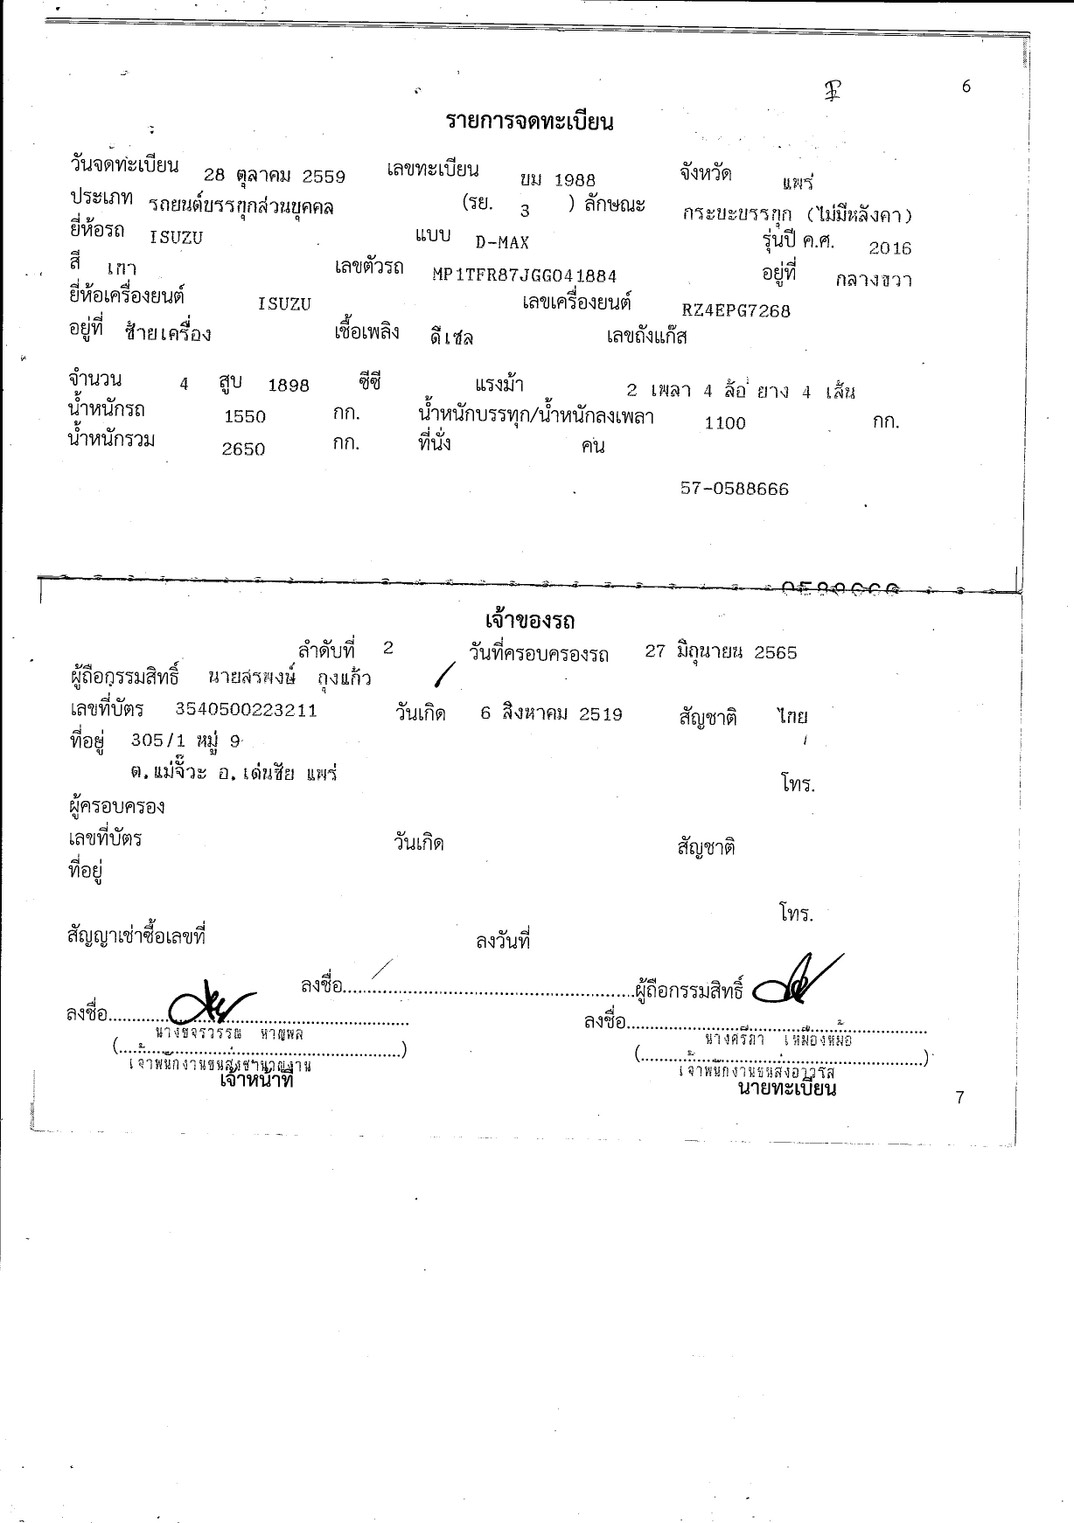 6
รายการจดทะเบียน
วันจดทะเบียน 28 ตุลาคม 2559 เลขทะเบียน ขม 1988 จังหวัด แพร่
ประเภท รถยนต์บรรทุกส่วนบุคคล (รย. 3 ) ลักษณะ กระบะบรรทุก (ไม่มีหลังคา)
ยี่ห้อรถ ISUZU แบบ D-MAX รุ่นปี ค.ศ. 2016
สี เทา เลขตัวรถ MP1TFR87JGG041884 อยู่ที่ กลางขวา
ยี่ห้อเครื่องยนต์ ISUZU เลขเครื่องยนต์ RZ4EPG7268
อยู่ที่ ซ้ายเครื่อง เชื้อเพลิง ดีเซล เลขถังแก๊ส
จำนวน 4 สูบ 1898 ซีซี แรงม้า 2 เพลา 4 ล้อ ยาง 4 เส้น
น้ำหนักรถ 1550 กก. น้ำหนักบรรทุก/น้ำหนักลงเพลา 1100 กก.
น้ำหนักรวม 2650 กก. ที่นั่ง คน
57-0588666
เจ้าของรถ
ลำดับที่ 2 วันที่ครอบครองรถ 27 มิถุนายน 2565
ผู้ถือกรรมสิทธิ์ นายสรพงษ์ ถุงแก้ว
เลขที่บัตร 3540500223211 วันเกิด 6 สิงหาคม 2519 สัญชาติ ไทย
ที่อยู่ 305/1 หมู่ 9
ต.แม่จั๊วะ อ.เด่นชัย แพร่ โทร.
ผู้ครอบครอง
เลขที่บัตร วันเกิด สัญชาติ
ที่อยู่
โทร.
สัญญาเช่าซื้อเลขที่ ลงวันที่
ลงชื่อ ผู้ถือกรรมสิทธิ์
ลงชื่อ ลงชื่อ
นางขจรวรรณ หาญพล นางศรีภา เหมืองหม้อ
เจ้าพนักงานขนส่งชำนาญงาน เจ้าพนักงานขนส่งอาวุโส
เจ้าหน้าที่ นายทะเบียน
7